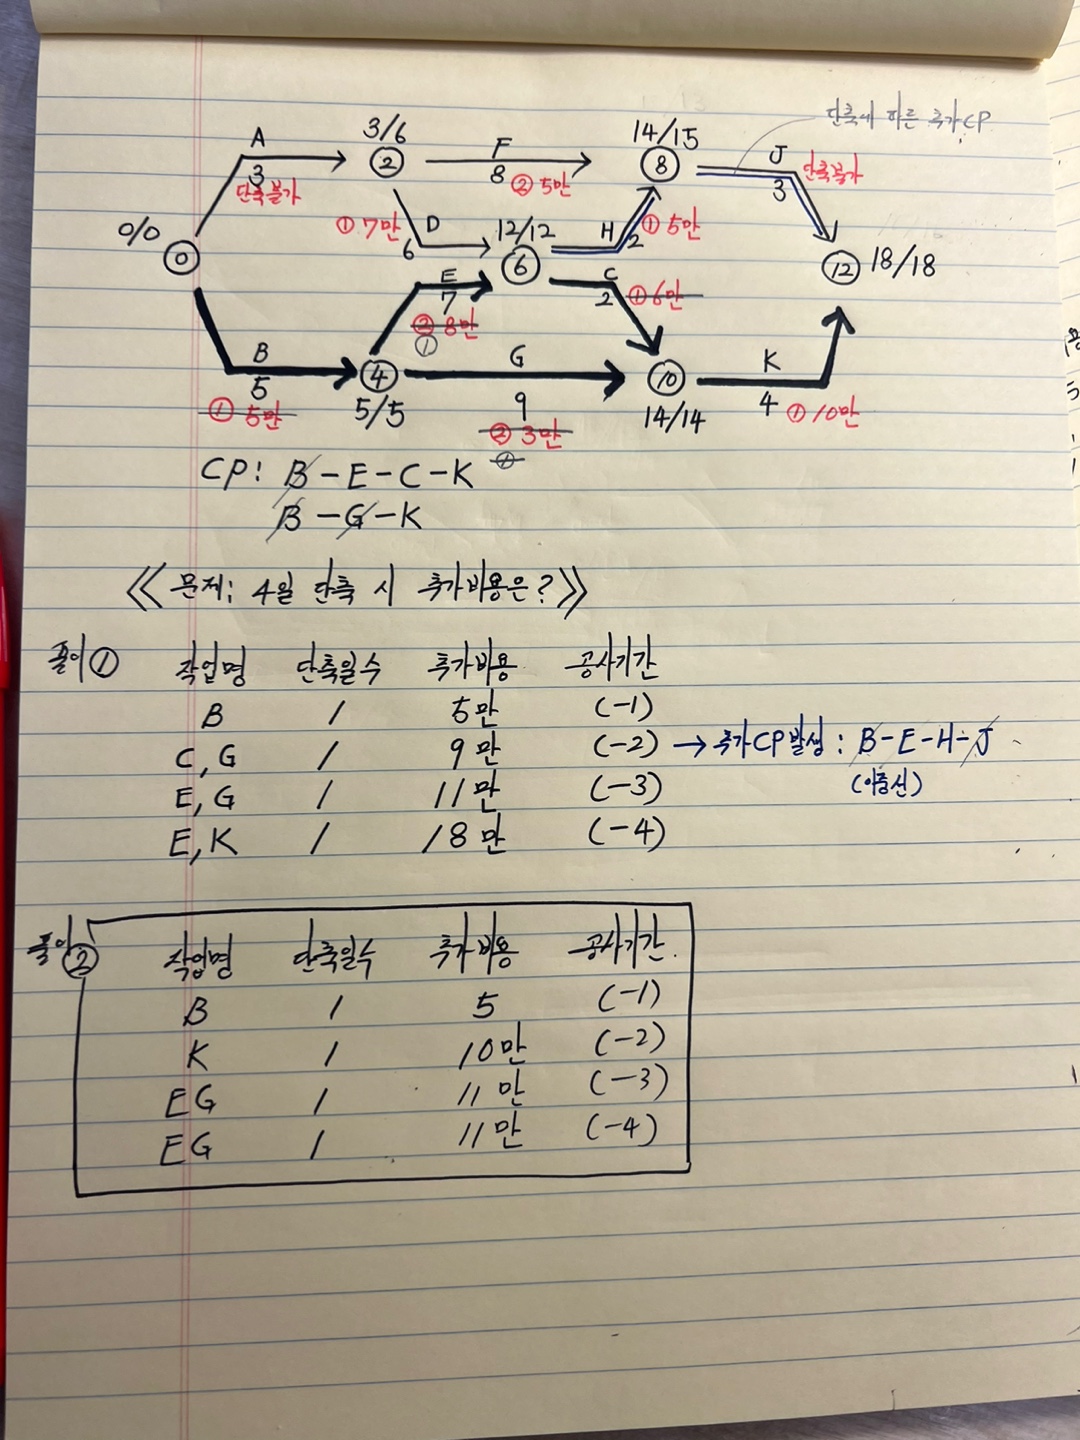 단축에 따른 추가CP
A 3/6 F 14/15 J
3 ② 8 ② 5만 ⑧ 3 단축불가
단축불가
① 7만 D 12/12 H ① 5만
0/0 6 2
⓪ E ⑥ C ⑫ 18/18
7 2 ① 6만
② 8만
①
B G K
5 ④ 9 ⑩ 4 ① 10만
① 5만 5/5 ② 3만 14/14
①
CP: B-E-C-K
B-G-K
《 문제: 4일 단축 시 추가비용은? 》
풀이① 작업명 단축일수 추가비용 공사기간
B 1 5만 (-1)
C, G 1 9만 (-2) → 추가CP발생 : B-E-H-J
(이중선)
E, G 1 11만 (-3)
E, K 1 18만 (-4)
풀이② 작업명 단축일수 추가비용 공사기간.
B 1 5 (-1)
K 1 10만 (-2)
EG 1 11만 (-3)
EG 1 11만 (-4)